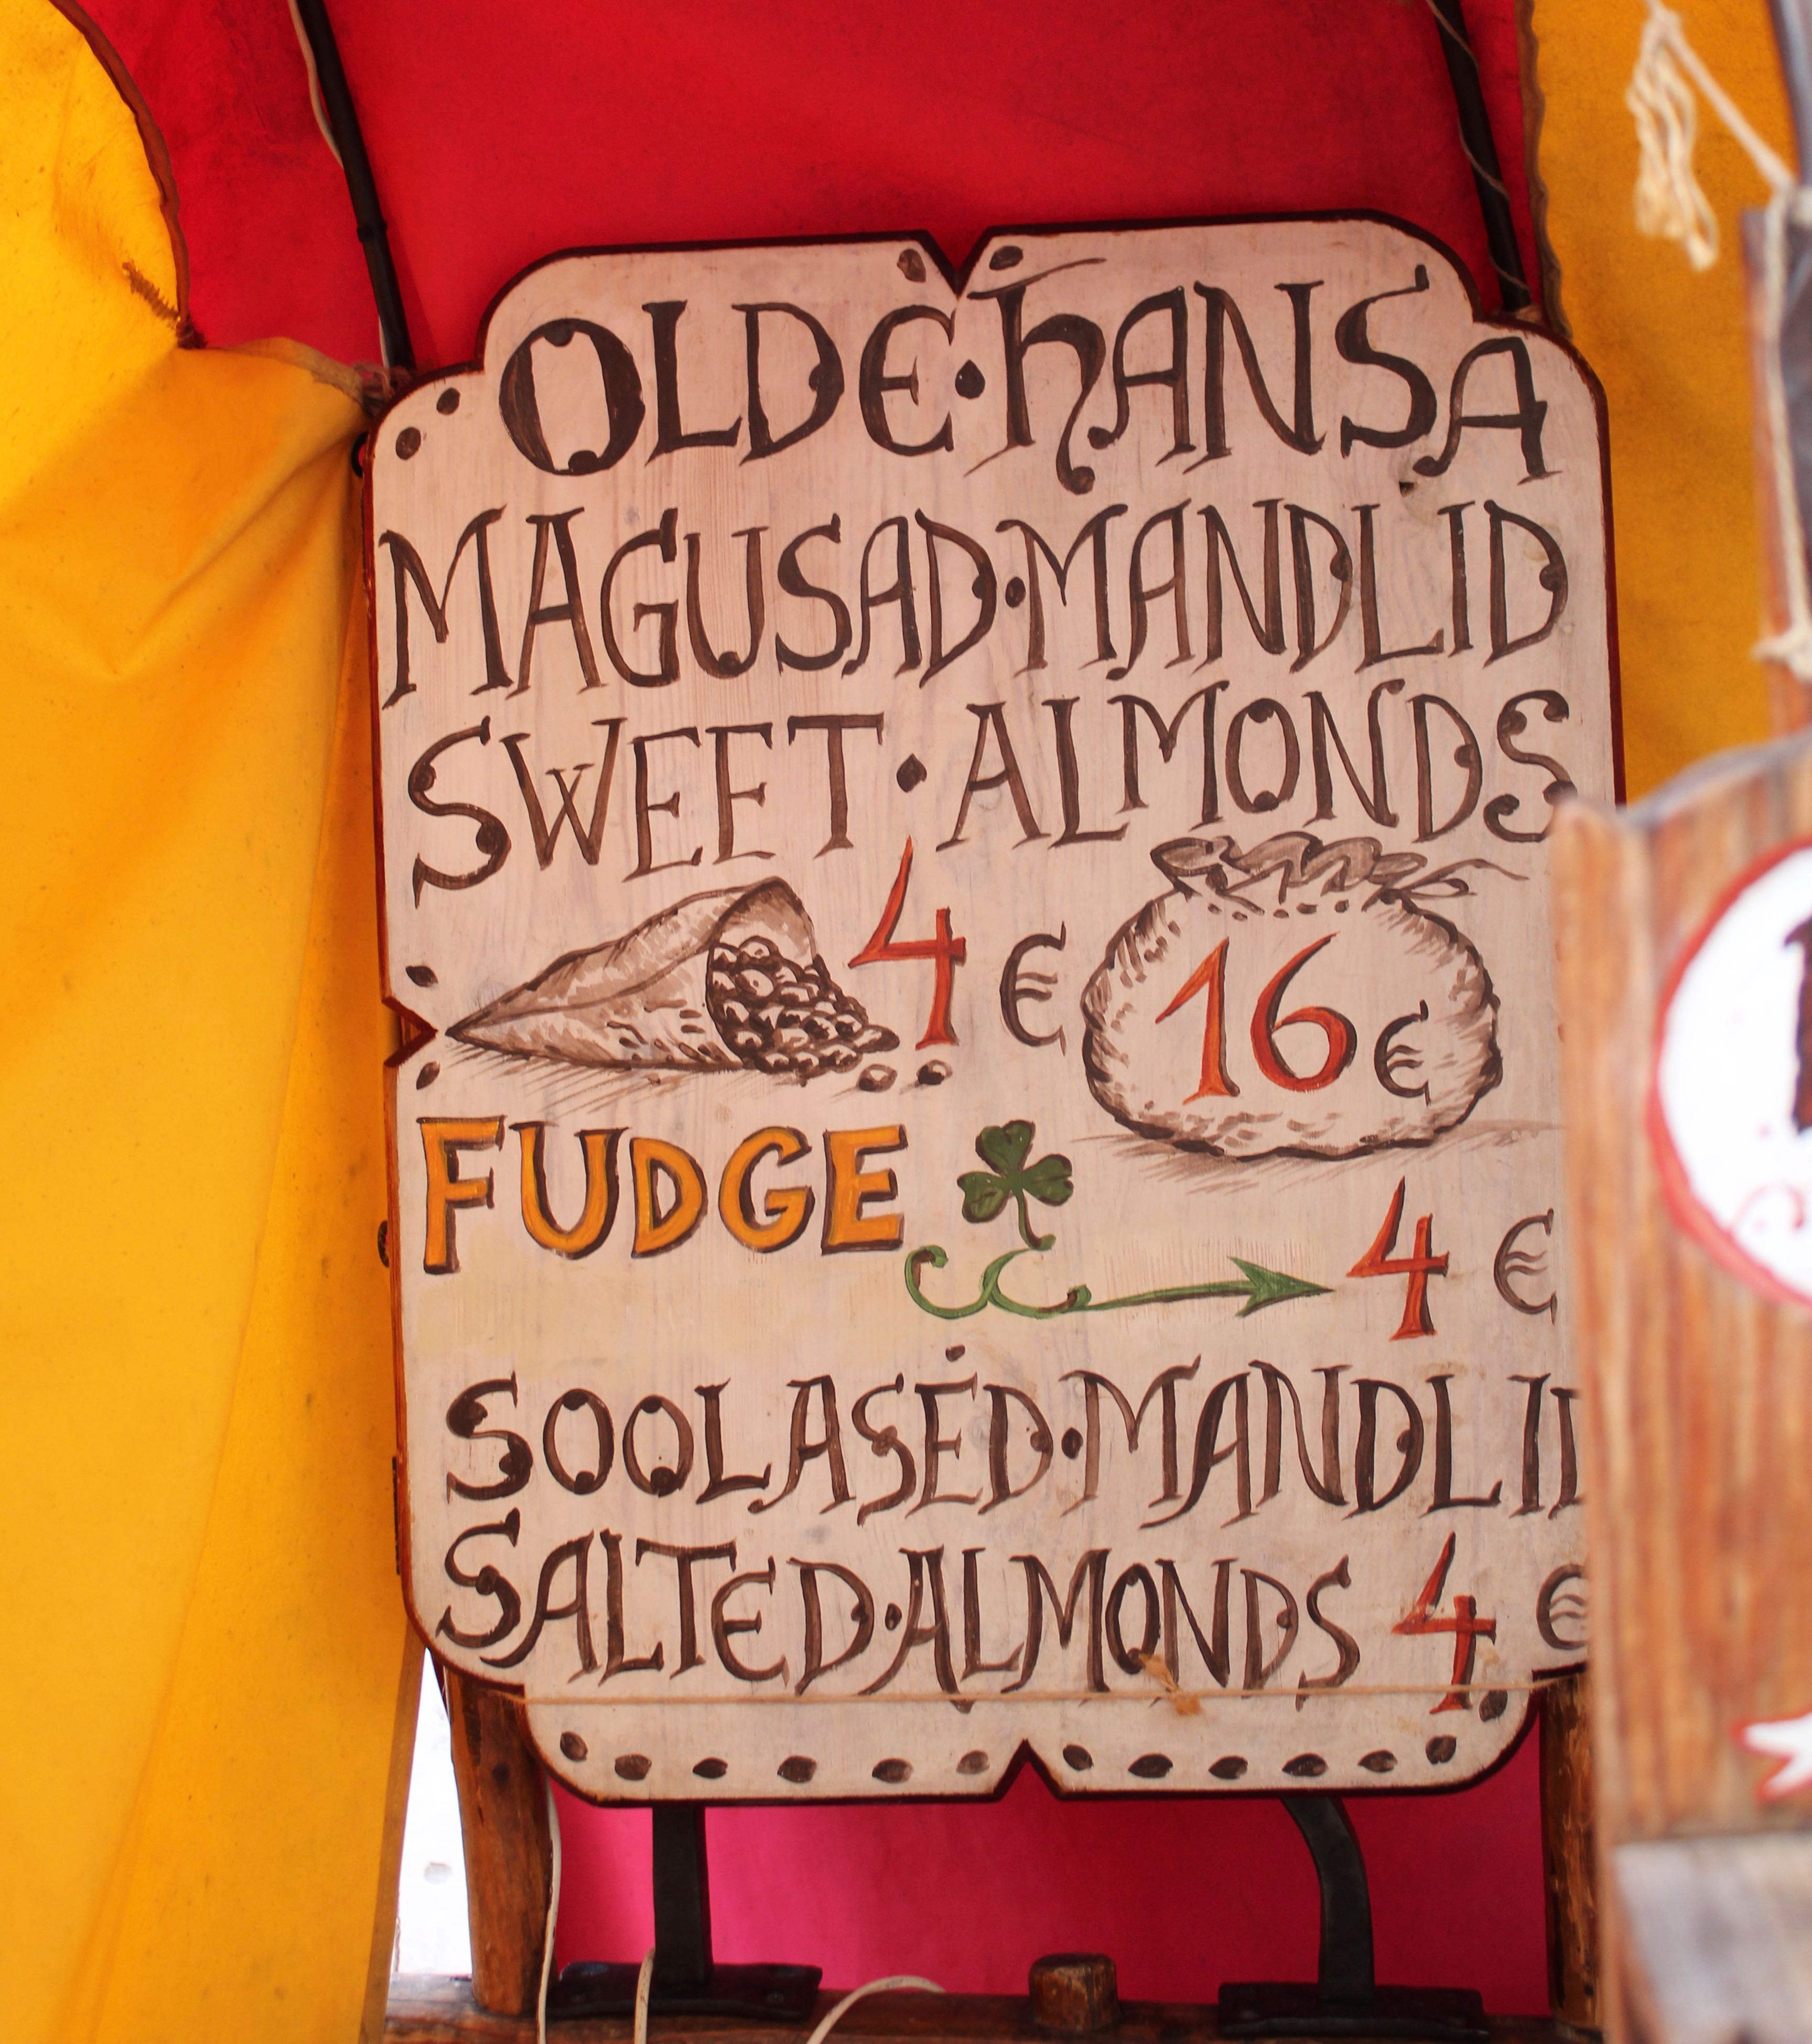 OLDE·HANSA
MAGUSAD·MANDLID
SWEET·ALMONDS
4 € 16 €
FUDGE
4 €
SOOLASED·MANDLID
SALTED·ALMONDS 4 €